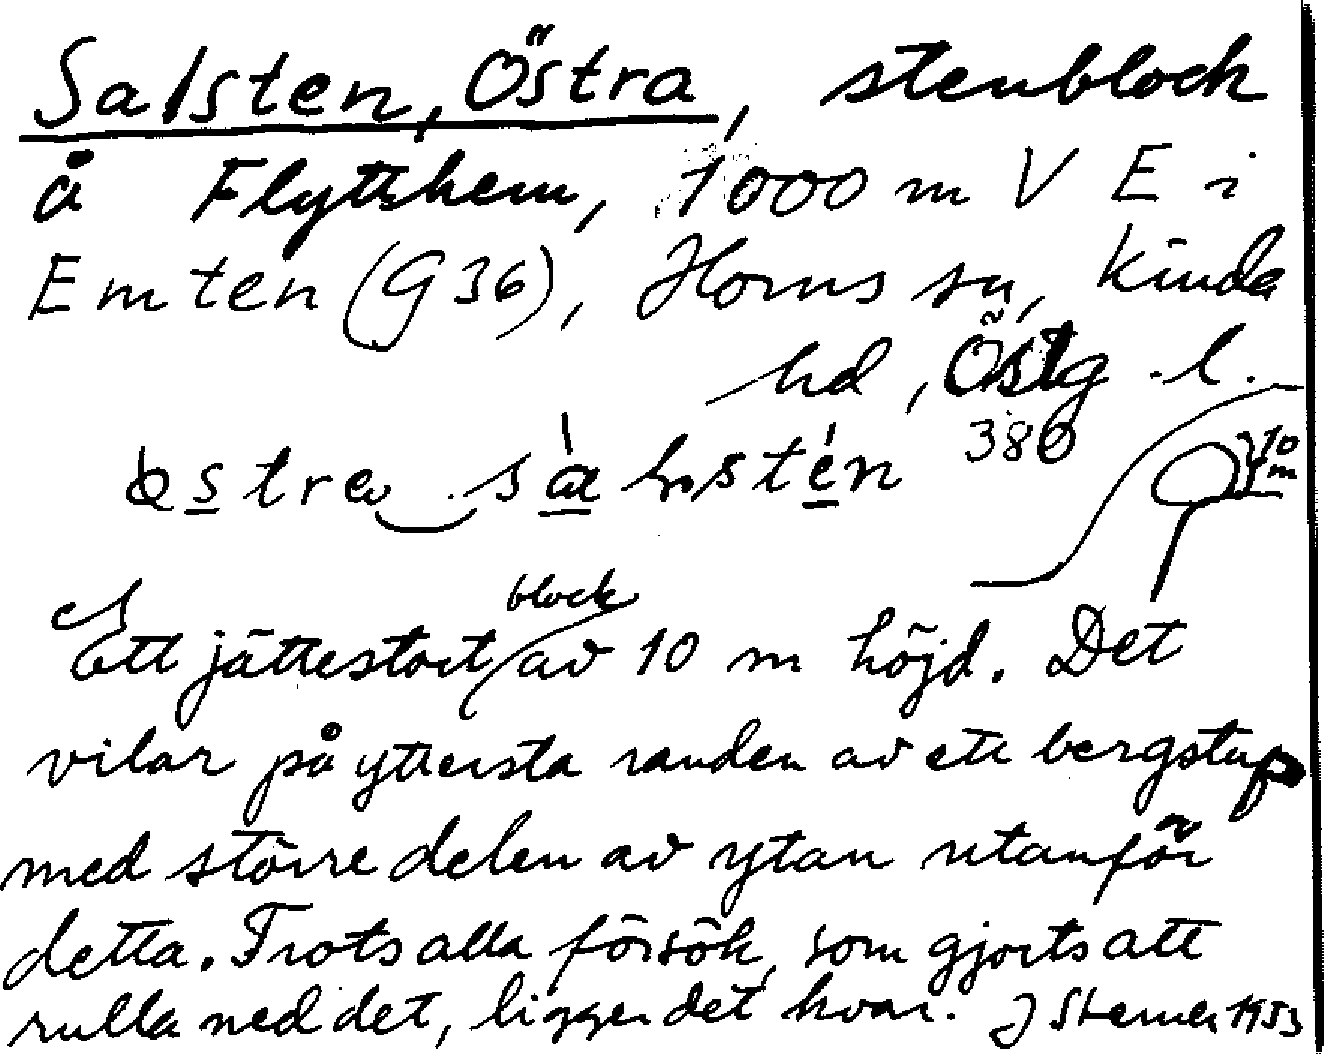 Salsten, Östra, stenblock
å Flyttshem, 1000 m V E i
Emten (G36), Horns sn, Kinda
hd, Östg. l.
386
10 m
Ett jättestort block av 10 m höjd. Det
vilar på yttersta randen av ett bergstup
med större delen av ytan utanför
detta. Trots alla försök, som gjorts att
rulla ned det, ligger det kvar. J Sterner 1953